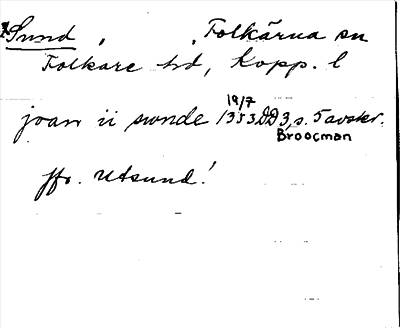 Sund, , Folkärna sn
Folkare hd, Kopp. l
joan ii swnde 19/7 1353 DD 3, s. 5 avskr.
Broocman
Jfr. Utsund!